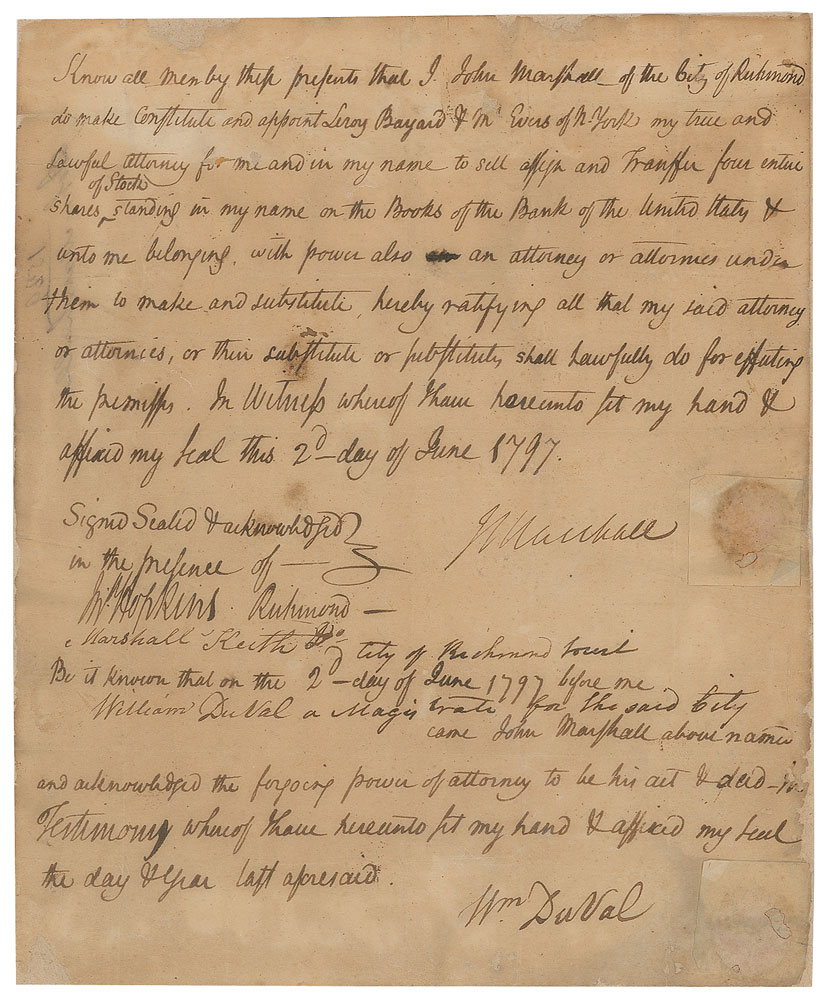 Know all Men by these presents that I. John Marshall of the City of Richmond
do make Constitute and appoint Leroy Bayard & Mc Evers of N. York my true and
Lawful attorney for me and in my name to sell assign and Transfer four entire
of Stock
shares standing in my name on the Books of the Bank of the United States &
unto me belonging, with power also an attorney or attornies under
them to make and substitute, hereby ratifying all that my said attorney
or attornies, or their substitute or substitutes shall Lawfully do for effecting
the premisses. In Witness whereof I have hereunto set my hand &
affixed my seal this 2d day of June 1797.
Signd Sealed & acknowledged
in the presence of
J Marshall
Jn. Hopkins. Richmond
Marshall Keith Do
City of Richmond to wit
Be it known that on the 2d day of June 1797 before me
William DuVal a Magistrate for the said City
came John Marshall above named
and acknowledged the forgoing power of attorney to be his act & deed - in
Testimony whereof I have hereunto set my hand & affixed my seal
the day & Year last aforesaid.
Wm DuVal